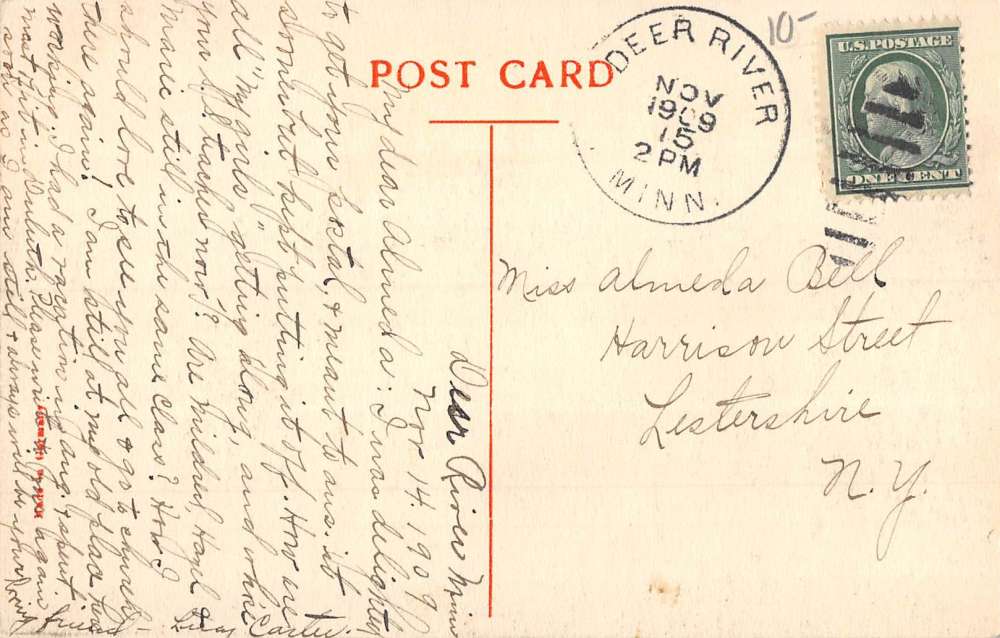 POST CARD
DEER RIVER
NOV
15
1909
2 PM
MINN.
10-
U.S. POSTAGE
ONE CENT
Miss Almeda Bell
Harrison Street
Lestershire
N.Y.
Deer River Minn
Nov 14. 1909
My dear Almeda: I was delighted
to get your postal, & meant to ans. it
somehow kept putting it off. How are
all "my girls" getting along, and who is
your S.S. teacher now? Are Mildred, Hazel &
Marie still in the same class? How I
should love to see you all & go to church
there again! I am still at my old place here
working. I had a vacation in Aug. & spent
most of it in Duluth. Please write again
soon as I am still & always will be your loving friend -
Carter.